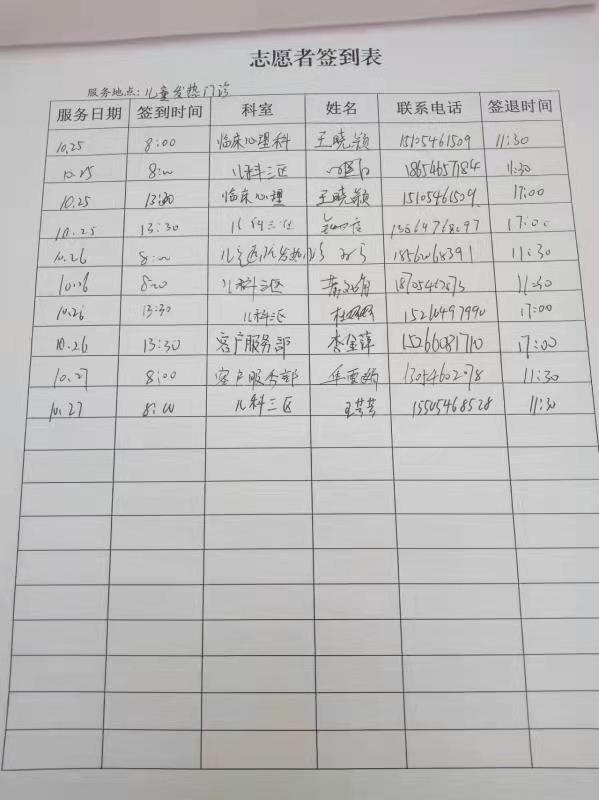 志愿者签到表
服务地点:儿童发热门诊
服务日期 签到时间 科室 姓名 联系电话 签退时间
10.25 8:00 临床心理科 王晓颖 15105461509 11:30
10.25 8:00 儿科三区 18654657184 11:30
10.25 13:30 临床心理 王晓颖 15105461509 17:00
10.25 13:30 儿科三区 17:00
10.26 8:00 11:30
10.26 8:00 儿科三区 11:30
10.26 13:30 儿科三区 17:00
10.26 13:30 客户服务部 李金萍 15266081710 17:00
10.27 8:00 客户服务部 11:30
10.27 8:00 儿科三区 王芸芸 15505468528 11:30